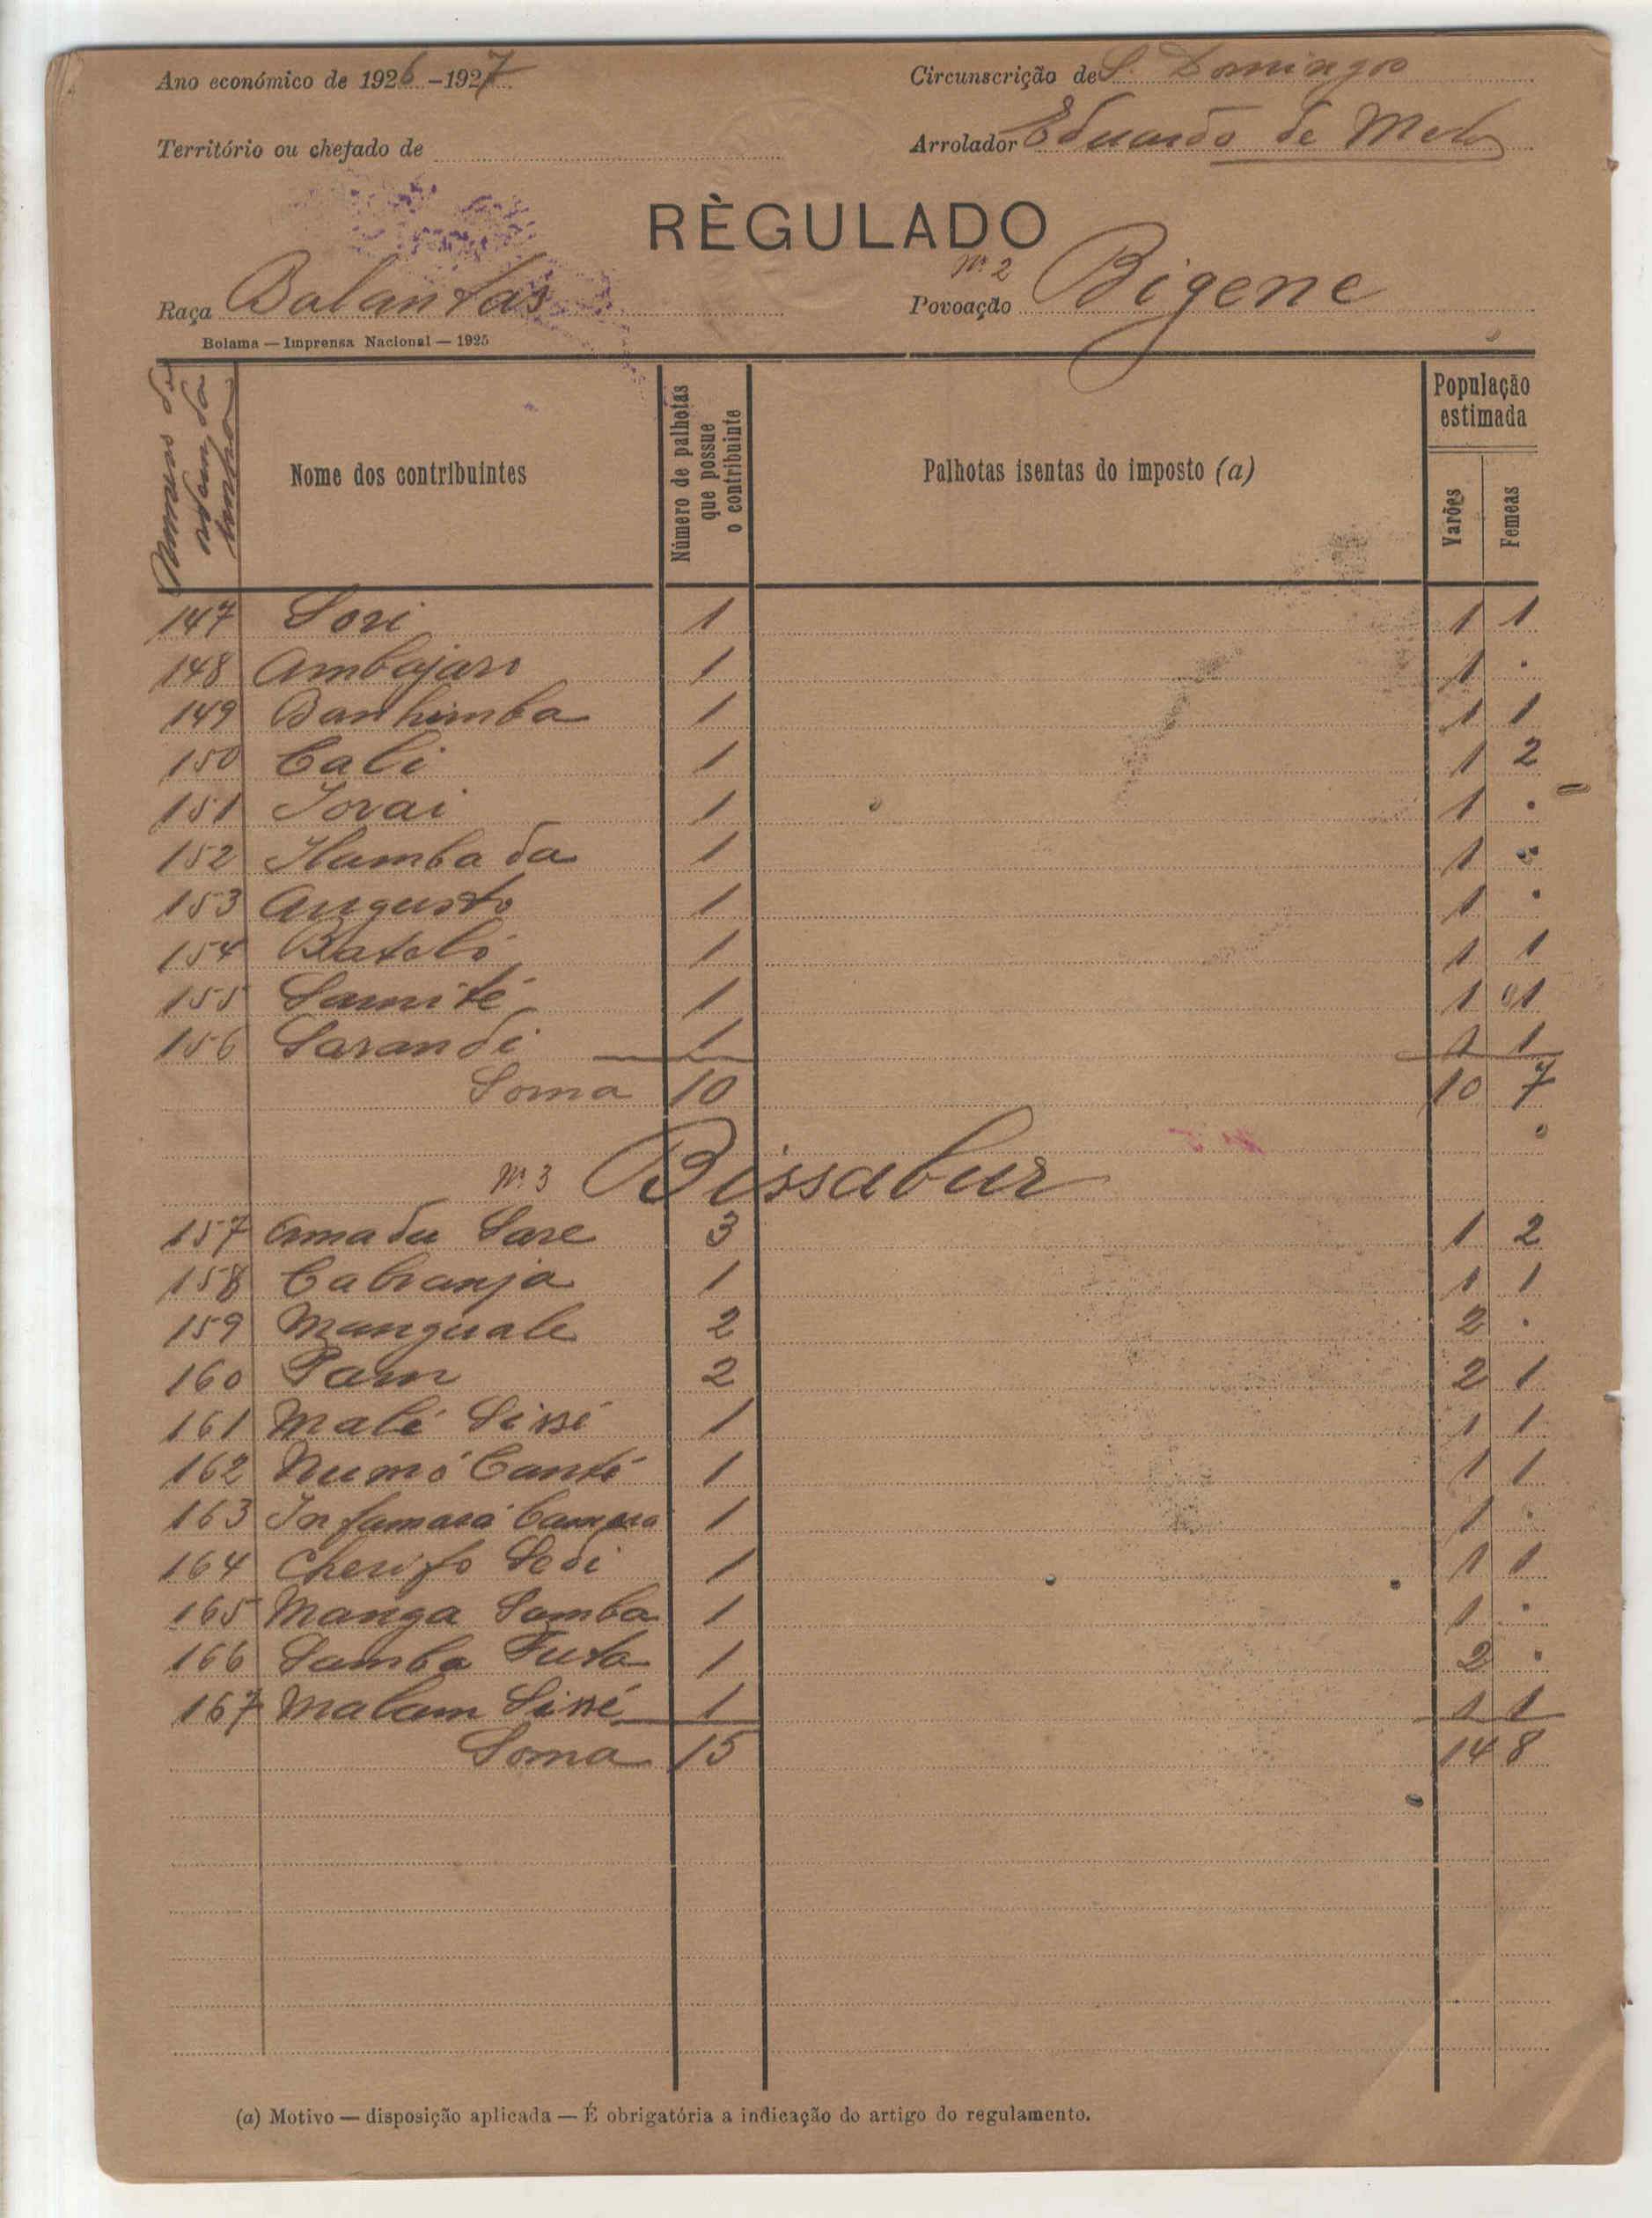 Ano económico de 1926-1927
Circunscrição de S. Domingos
Território ou chefado de
Arrolador Eduardo de Melo
RÈGULADO
Nº 2
Raça Balantas
Povoação Bigene
Bolama — Imprensa Nacional — 1925
Numero de ordem da
Nome dos contribuintes
Número de palhotas que possue o contribuinte
Palhotas isentas do imposto (a)
População estimada
Varões
Femeas
147 Sori 1 1 1
148 Ambajaro 1 1 .
149 Banhimba 1 1 1
150 Cali 1 1 2
151 Jovai 1 1 .
152 Hamba da 1 1 .
153 Augusto 1 1 .
154 Batoló 1 1 1
155 Samité 1 1 1
156 Sarandi 1 1 1
Soma 10 10 7
Nº 3 Bissabur
157 Amadu Sare 3 1 2
158 Cabranja 1 1 1
159 Manguale 2 2 .
160 Pam 2 2 1
161 Malé Sissé 1 1 1
162 Numó Canté 1 1 1
163 Infamará Camara 1 1 .
164 Cherifo Sedi 1 1 1
165 Manga Samba 1 1 .
166 Samba Futa 1 2 .
167 Malam Sissé 1 1 1
Soma 15 14 8
(a) Motivo — disposição aplicada — É obrigatória a indicação do artigo do regulamento.